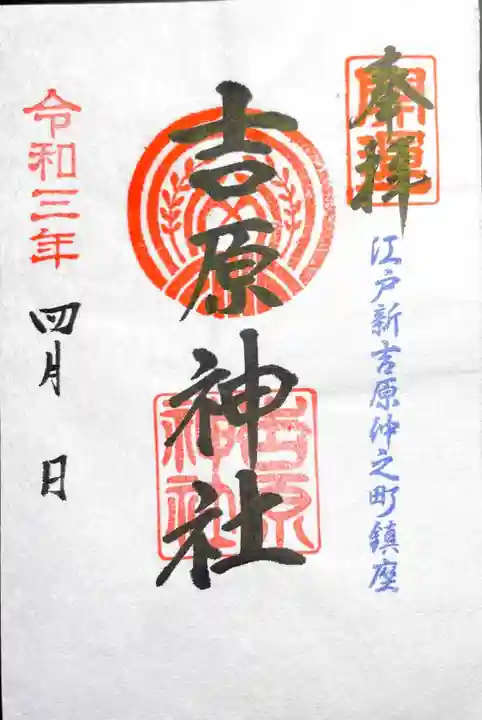 奉拝
開運
江戸新吉原仲之町鎮座
吉原神社
吉原神社
令和三年
四月 日